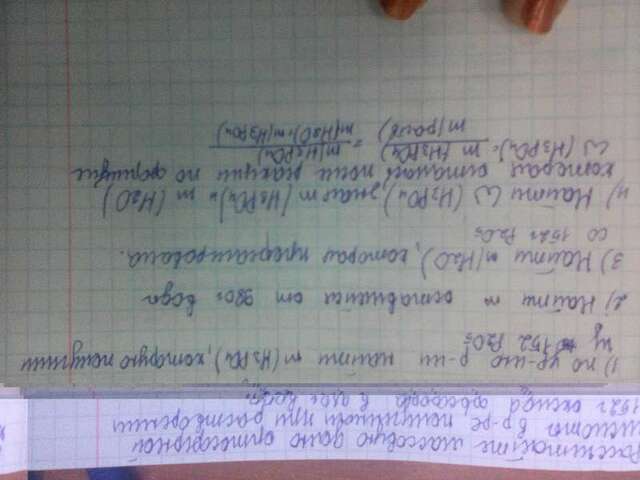 Рассчитайте массовую долю ортосфорной
кислоты в р-ре, полученном при растворении
152г оксида фосфора в воды.
1) по ур-нию р-ии найти m(H3PO4), которую получили
из 152 P2O5
2) Найти m оставшейся от 980г воды
3) Найти m(H2O), которая прореагировала.
со 152г P2O5
4) Найти ω (H3PO4), зная m (H3PO4) и m (H2O),
которая осталась после реакции по формуле
ω (H3PO4) = m (H3PO4) / m (раств) = m(H3PO4) / m(H2O)+m(H3PO4)